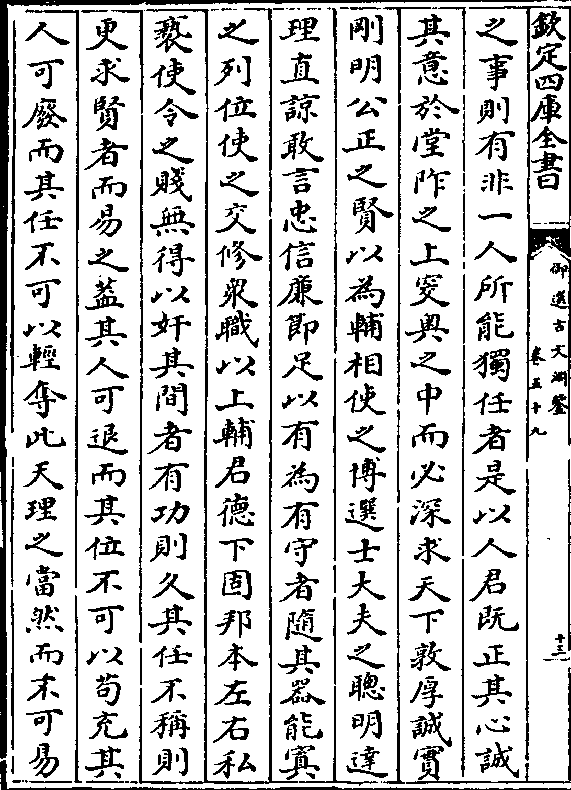 欽定四庫全書
御選古文淵鑒
卷五十九
十三
之事則有非一人所能獨任者是以人君既正其心誠
其意於堂阼之上突奧之中而必深求天下敦厚誠實
剛明公正之賢以為輔相使之博選士大夫之聰明達
理直諒敢言忠信廉節足以有為有守者隨其器能寘
之列位使之交修衆職以上輔君德下固邦本左右私
褻使令之賤無得以奸其間者有功則久其任不稱則
更求賢者而易之蓋其人可退而其位不可以苟充其
人可廢而其任不可以輕奪此天理之當然而不可易